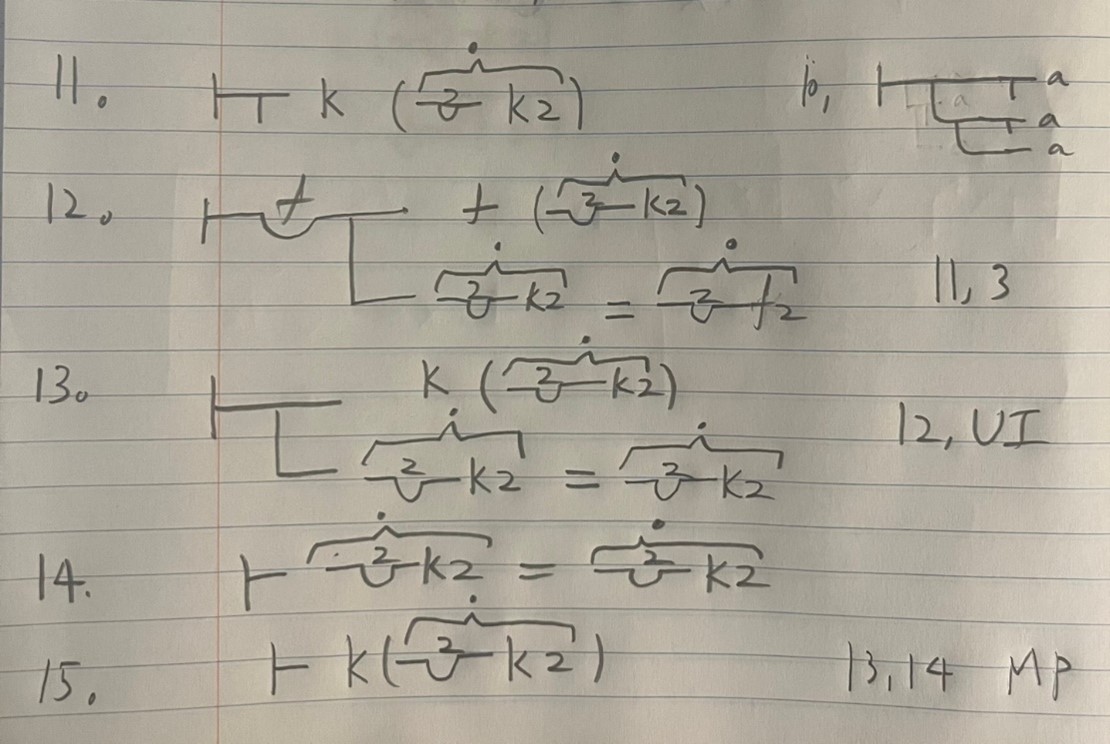 11. ⊢┬ K ( 2 K2 ) 10, ⊢ a
a
a
12. ⊢ f f ( 2 K2 )
2 K2 = 2 f2 11, 3
13. ⊢ K ( 2 K2 )
2 K2 = 2 K2 12, UI
14. ⊢ 2 K2 = 2 K2
15. ⊢ K( 2 K2 ) 13,14 MP